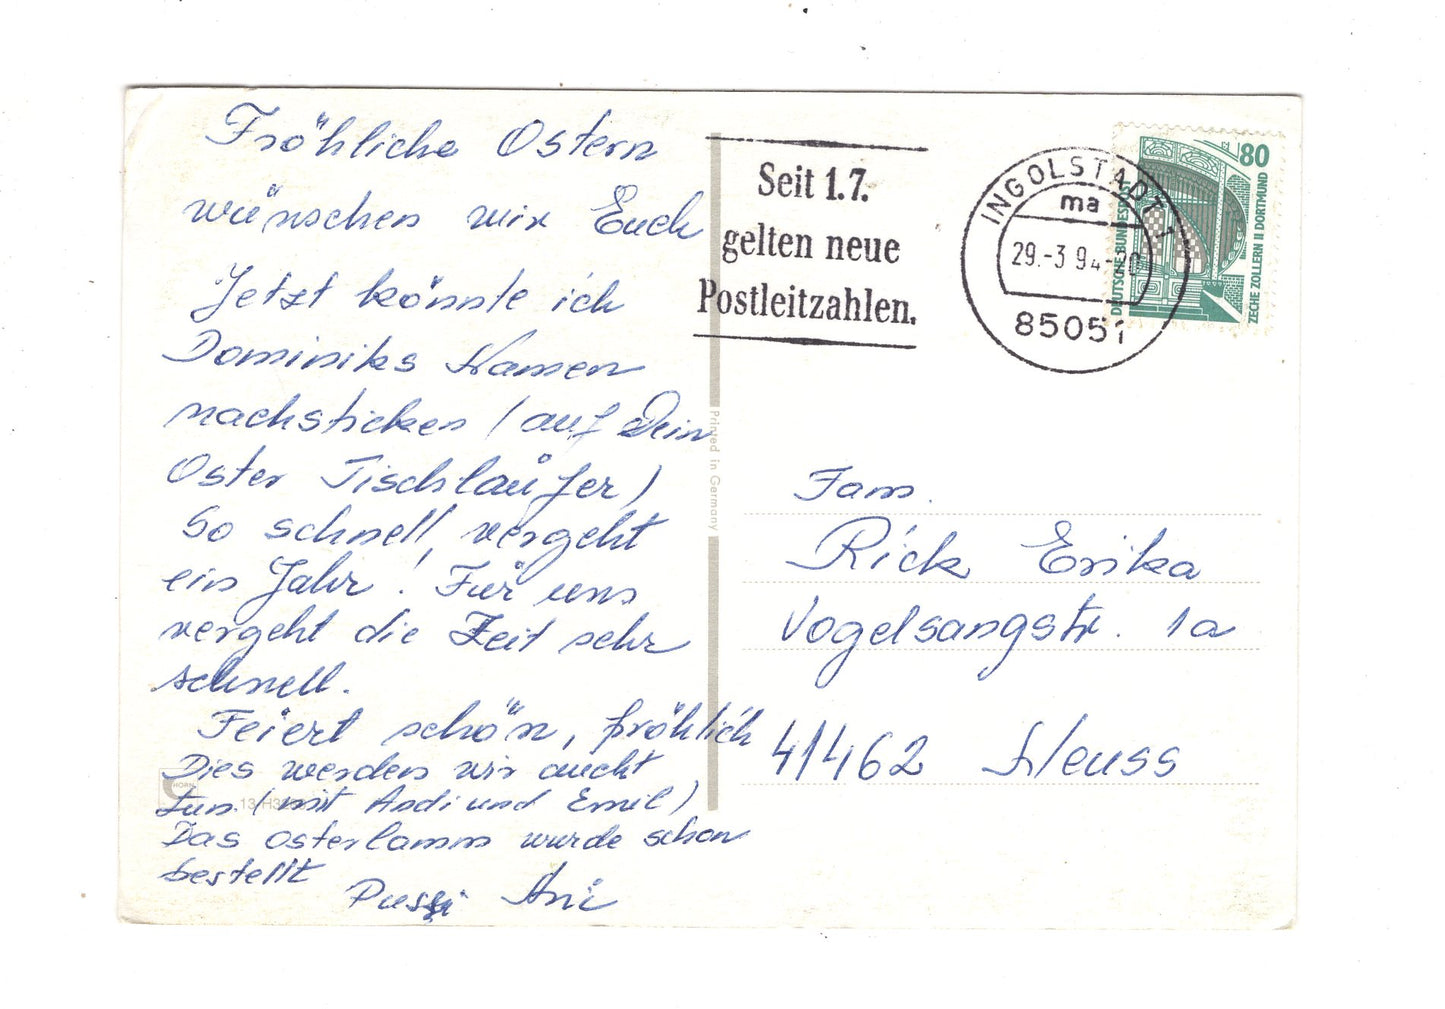 Fröhliche Ostern
wünschen wir Euch
Jetzt könnte ich
Dominiks Namen
nachsticken (auf Dein
Oster Tischläufer)
So schnell vergeht
ein Jahr! Für uns
vergeht die Zeit sehr
schnell.
Feiert schön, fröhlich
Dies werden wir aucht
tun (mit Andi und Emil)
Das Osterlamm wurde schon
bestellt
Pussi Ani
HORN
Printed in Germany
Seit 1.7.
gelten neue
Postleitzahlen.
INGOLSTADT 1
ma
29.-3 94-20
85051
80
DEUTSCHE BUNDESPOST
ZECHE ZOLLERN II DORTMUND
Fam.
Rick Erika
Vogelsangstr. 1a
41462 Neuss